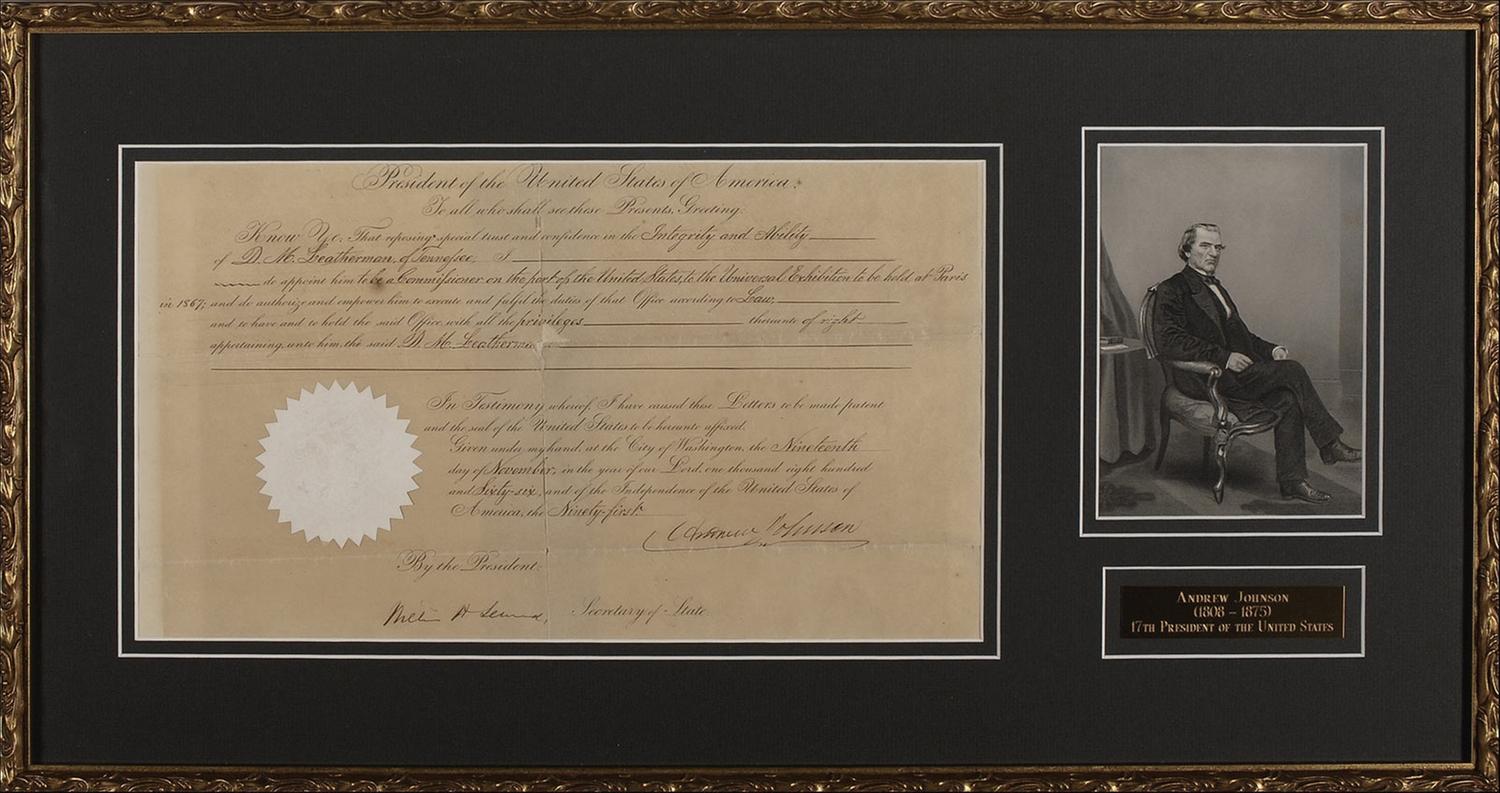 President of the United States of America.
To all who shall see these Presents, Greeting:
Know Ye, That reposing special trust and confidence in the Integrity and Ability
of D. M. Leatherman, of Tennessee, I
do appoint him to be a Commissioner on the part of the United States, to the Universal Exhibition to be held at Paris
in 1867; and do authorize and empower him to execute and fulfil the duties of that Office according to Law,
and to have and to hold the said Office, with all the privileges thereunto of right
appertaining, unto him, the said D. M. Leatherman
In Testimony whereof, I have caused these Letters to be made patent
and the seal of the United States to be hereunto affixed.
Given under my hand, at the City of Washington, the Nineteenth
day of November, in the year of our Lord, one thousand eight hundred
and Sixty-six, and of the Independence of the United States of
America, the Ninety-first.
Andrew Johnson
By the President:
William H Seward, Secretary of State.
ANDREW JOHNSON
(1808 – 1875)
17TH PRESIDENT OF THE UNITED STATES